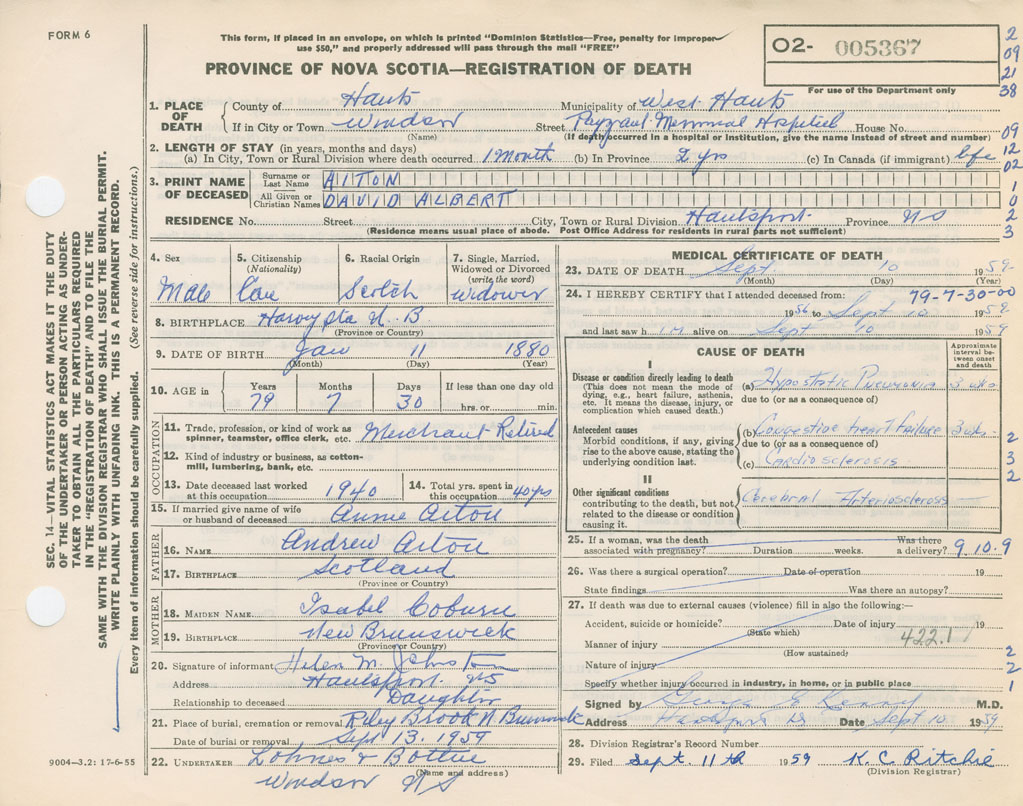 FORM 6
This form, if placed in an envelope, on which is printed "Dominion Statistics—Free, penalty for improper use $50," and properly addressed will pass through the mail "FREE"
O2- 005367
For use of the Department only
PROVINCE OF NOVA SCOTIA—REGISTRATION OF DEATH
2
09
21
38
1. PLACE OF DEATH
County of Hants Municipality of West Hants
If in City or Town Windsor Street Payzant Memorial Hospital House No.
(Name) (If death occurred in a hospital or institution, give the name instead of street and number)
09
12
02
2. LENGTH OF STAY (in years, months and days)
(a) In City, Town or Rural Division where death occurred 1 Month (b) In Province 2 yrs (c) In Canada (if immigrant) life
3. PRINT NAME OF DECEASED
Surname or Last Name AITON
All Given or Christian Names DAVID ALBERT
1
0
2
3
RESIDENCE No. Street City, Town or Rural Division Hantsport Province NS
(Residence means usual place of abode. Post Office Address for residents in rural parts not sufficient)
4. Sex Male
5. Citizenship (Nationality) Can
6. Racial Origin Scotch
7. Single, Married, Widowed or Divorced (write the word) Widower
8. BIRTHPLACE N.B
(Province or Country)
9. DATE OF BIRTH Jan 11 1880
(Month) (Day) (Year)
10. AGE in Years 79 Months 7 Days 30 If less than one day old hrs. or min.
OCCUPATION
11. Trade, profession, or kind of work as spinner, teamster, office clerk, etc. Merchant Retired
12. Kind of industry or business, as cotton-mill, lumbering, bank, etc.
13. Date deceased last worked at this occupation 1940
14. Total yrs. spent in this occupation 40 yrs
15. If married give name of wife or husband of deceased Annie Aiton
FATHER
16. NAME Andrew Aiton
17. BIRTHPLACE Scotland
(Province or Country)
MOTHER
18. MAIDEN NAME Isabel Coburn
19. BIRTHPLACE New Brunswick
(Province or Country)
20. Signature of informant Helen M. Johnston
Address Hantsport NS
Relationship to deceased Daughter
21. Place of burial, cremation or removal Riley Brook N Brunswick
Date of burial or removal Sept 13. 1959
22. UNDERTAKER Lohnes & Bottie
(Name and address)
Windsor NS
MEDICAL CERTIFICATE OF DEATH
23. DATE OF DEATH Sept. 10 1959
(Month) (Day) (Year)
24. I HEREBY CERTIFY that I attended deceased from: 79-7-30-00
1956 to Sept 10 1959
and last saw h im alive on Sept 10 1959
CAUSE OF DEATH
Approximate interval between onset and death
I
Disease or condition directly leading to death
(This does not mean the mode of dying, e.g., heart failure, asthenia, etc. It means the disease, injury, or complication which caused death.)
(a) Hypostatic Pneumonia 3 wks
due to (or as a consequence of)
Antecedent causes
Morbid conditions, if any, giving rise to the above cause, stating the underlying condition last.
(b) Congestive Heart Failure 3 wks.
due to (or as a consequence of)
(c) Cardio sclerosis
2
3
2
II
Other significant conditions
contributing to the death, but not related to the disease or condition causing it.
Cerebral Arteriosclerosis
25. If a woman, was the death associated with pregnancy? Duration weeks. Was there a delivery? 9.10.9
26. Was there a surgical operation? Date of operation 19
State findings Was there an autopsy?
27. If death was due to external causes (violence) fill in also the following:—
Accident, suicide or homicide? Date of injury 19
(State which) 422.1
Manner of injury
(How sustained)
Nature of injury
Specify whether injury occurred in industry, in home, or in public place
2
2
1
Signed by George E. Kenny M.D.
Address Hantsport NS Date Sept 10 1959
28. Division Registrar's Record Number
29. Filed Sept. 11th 1959 K. C. Ritchie
(Division Registrar)
SEC. 14—VITAL STATISTICS ACT MAKES IT THE DUTY OF THE UNDERTAKER OR PERSON ACTING AS UNDERTAKER TO OBTAIN ALL THE PARTICULARS REQUIRED IN THE "REGISTRATION OF DEATH" AND TO FILE THE SAME WITH THE DIVISION REGISTRAR WHO SHALL ISSUE THE BURIAL PERMIT.
WRITE PLAINLY WITH UNFADING INK. THIS IS A PERMANENT RECORD.
Every item of information should be carefully supplied. (See reverse side for instructions.)
9004—3.2: 17-6-55